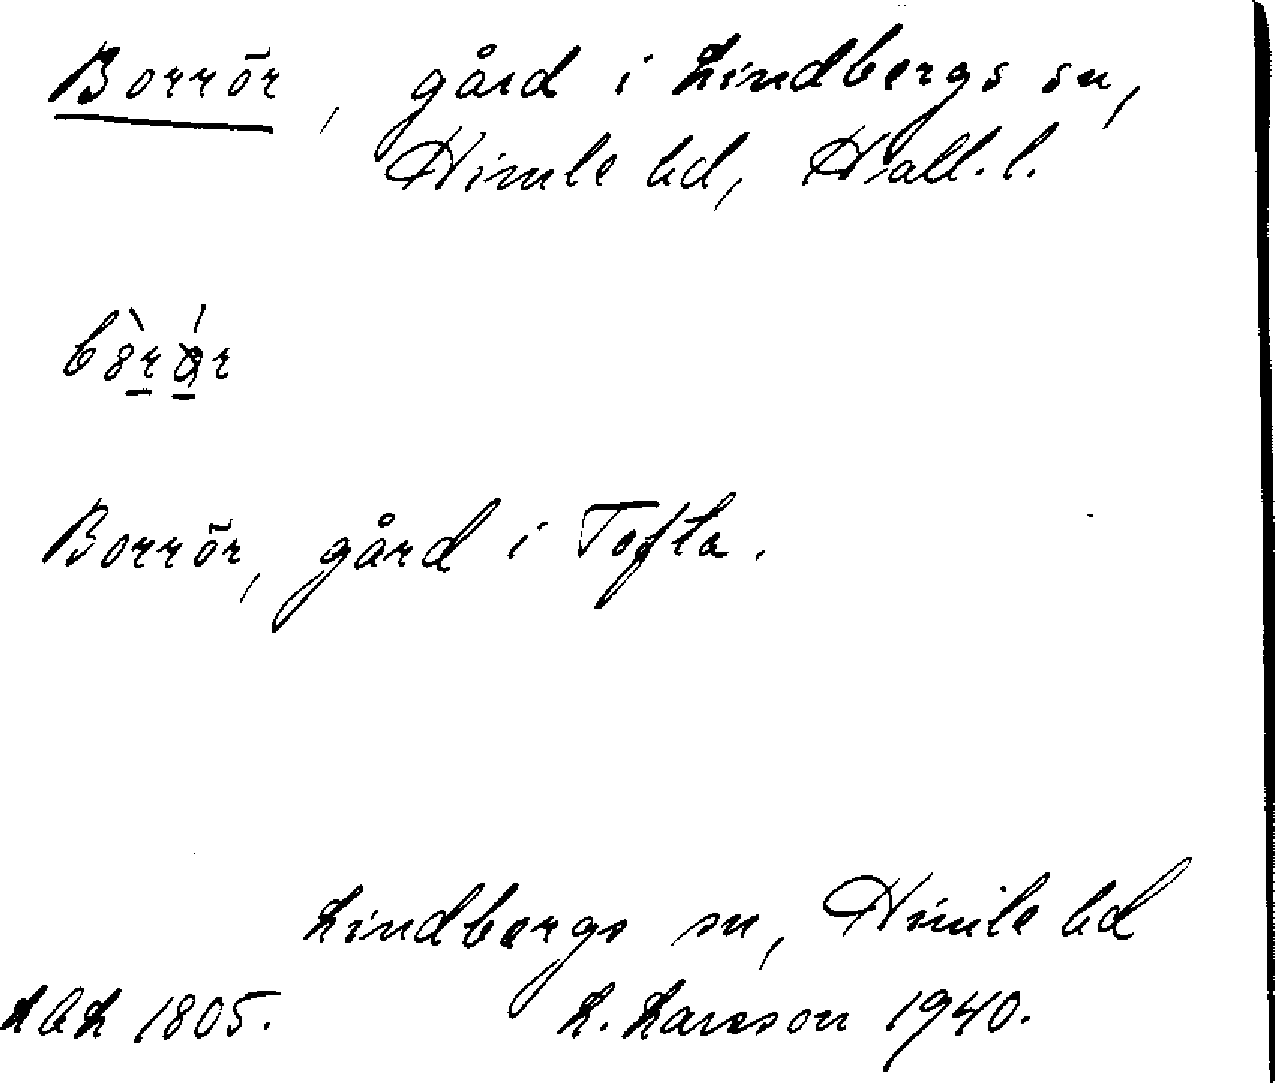 Borrör, gård i Lindbergs sn,
Himle hd, Hall. l.
Borrör, gård i Tofta.
Lindbergs sn, Himle hd
1805. L. Larsson 1940.